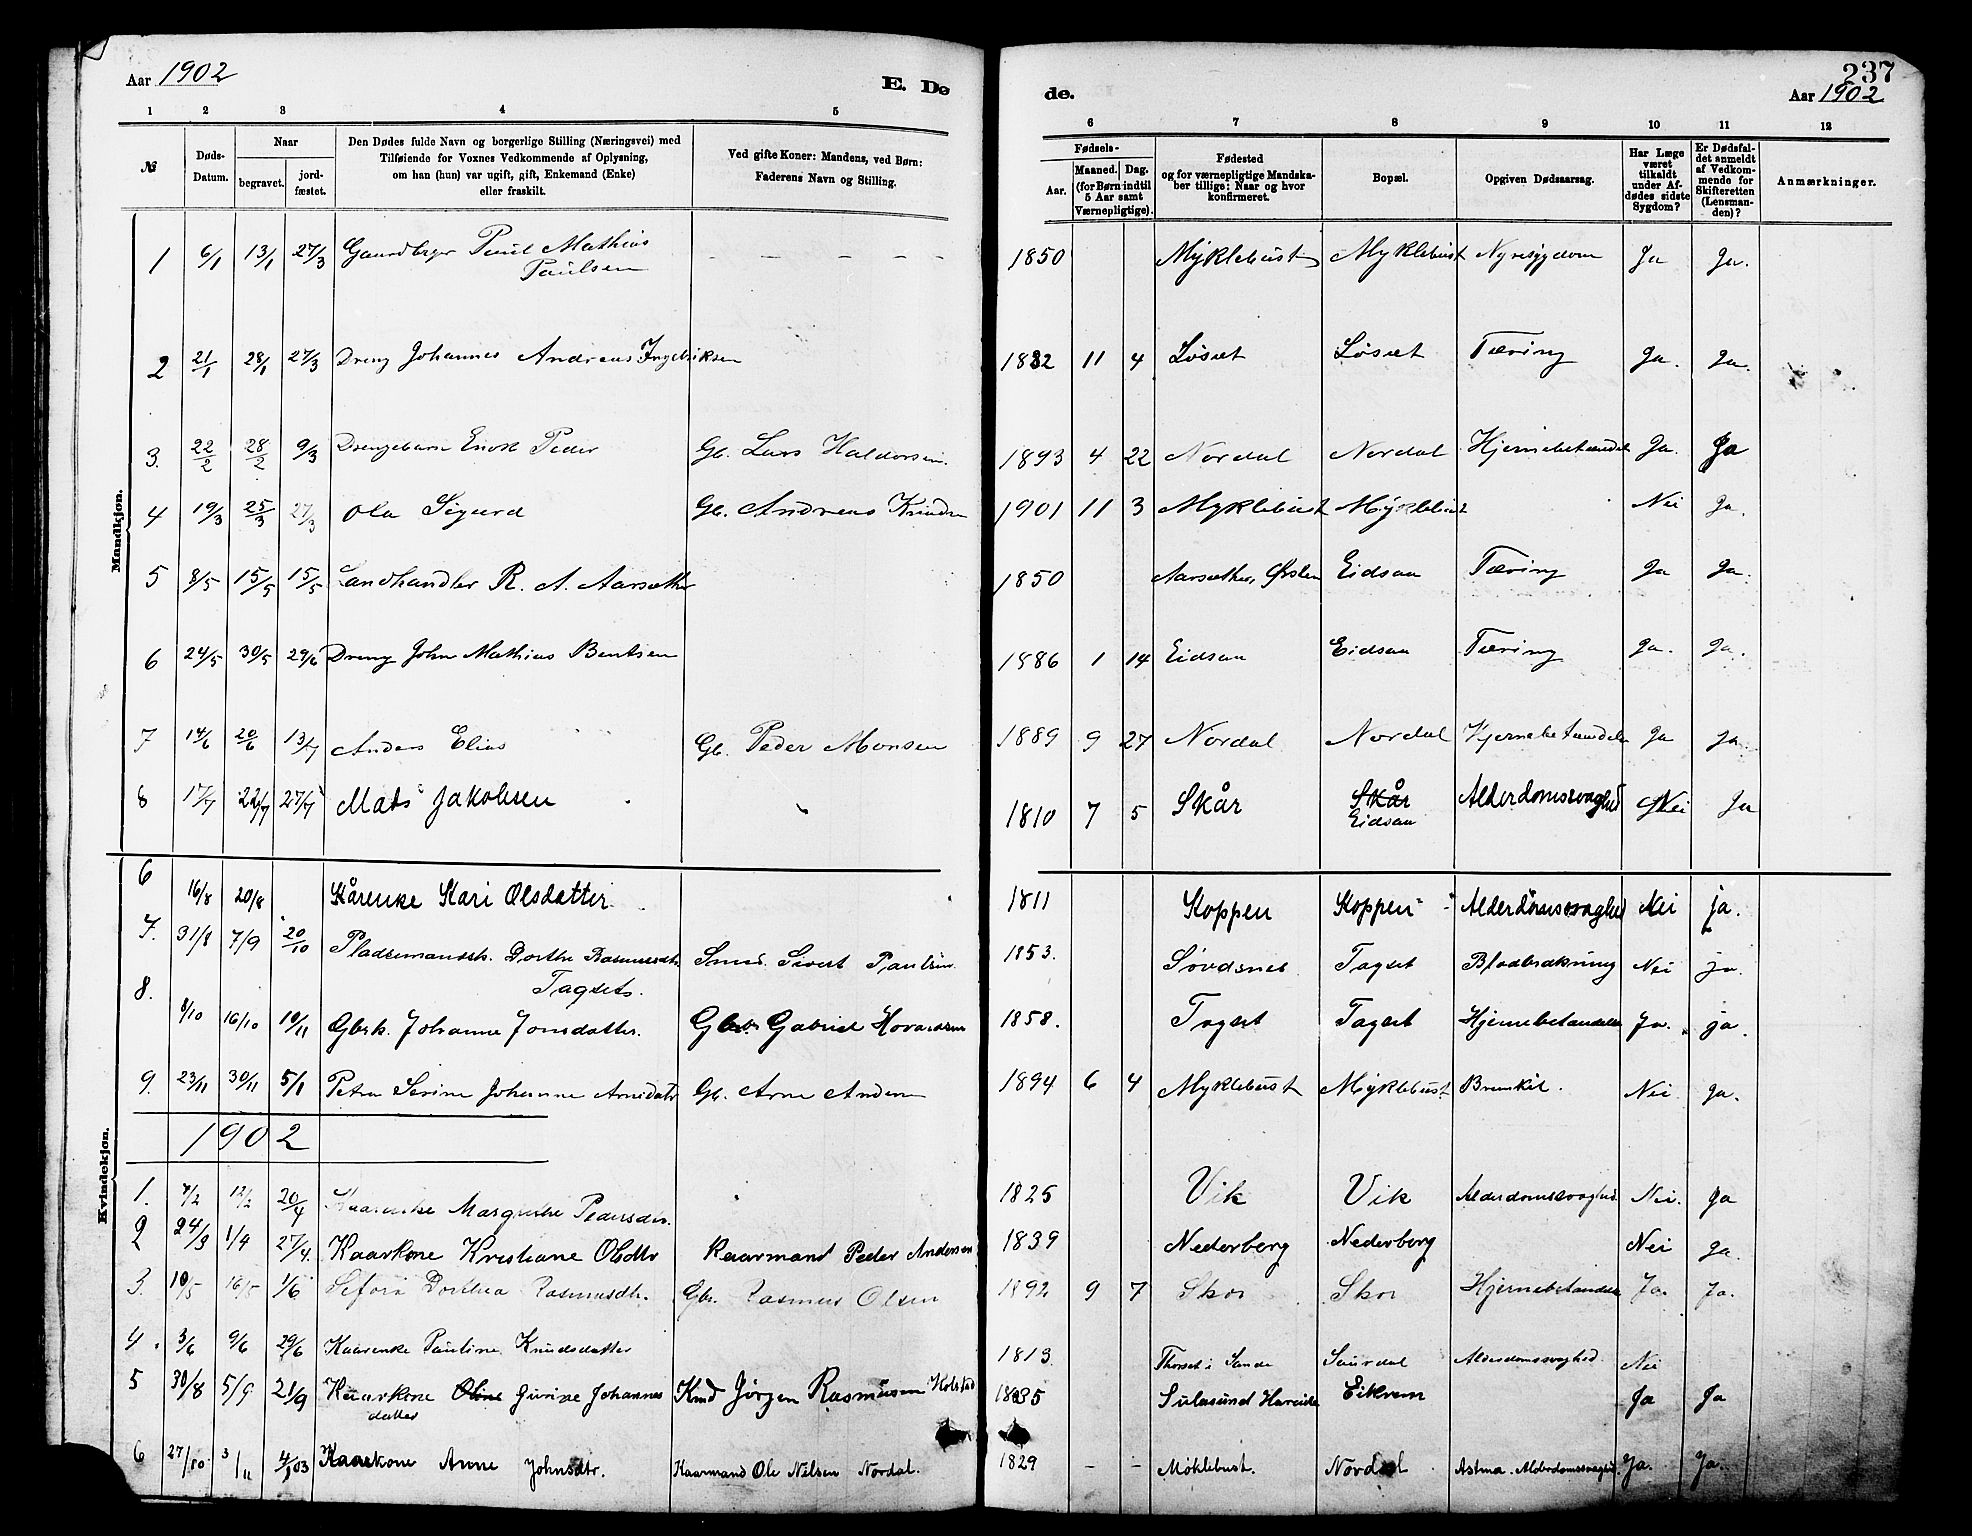 Aar 1902
E. Dø
de.
237
Aar 1902
1 2 3 4 5
6 7 8 9 10 11 12
№
Døds-Datum.
Naar
begravet.
jord-fæstet.
Den Dødes fulde Navn og borgerlige Stilling (Næringsvei) med
Tilføiende for Voxnes Vedkommende af Oplysning,
om han (hun) var ugift, gift, Enkemand (Enke)
eller fraskilt.
Ved gifte Koner: Mandens, ved Børn:
Faderens Navn og Stilling.
Fødsels-
Aar.
Maaned. Dag.
(for Børn indtil
5 Aar samt
Værnepligtige).
Fødested
og for værnepligtige Mandska-
ber tillige: Naar og hvor
konfirmeret.
Bopæl.
Opgiven Dødsaarsag.
Har Læge
været
tilkaldt
under Af-
dødes sidste
Sygdom?
Er Dødsfal-
det anmeldt
af Vedkom-
mende for
Skifteretten
(Lensman-
den)?
Anmærkninger.
Mandkjøn.
1 6/1 13/1 27/3 Gaardbrger Paul Mathias Paulsen – – – – – 1850 Myklebust Myklebust Nyresygdom Ja Ja.
2 21/1 28/1 27/3 Dreng Johannes Andreas Ingebriksen 1882 11 4 Løset Løset Tæring Ja. Ja.
3. 22/2 28/2 9/3 Drengebarn Enok Peder Gb. Lars Haldorsen. 1893 4 22 Nordal Nordal Hjernebetændel Ja. Ja
4 19/3 25/3 27/3 Ola Sigurd Gb. Andreas Knudsn 1901 11 3 Myklebust Myklebust Nei Ja.
5 8/5 15/5 15/5 Landhandler R. A. Aarsæther 1850 Aarsæther, Ørsten Eidsaa Tæring Ja Ja.
6 24/5 30/5 29/6 Dreng John Mathias Bentsen 1886 1 14 Eidsaa Eidsaa Tæring Ja. Ja.
7 14/6 20/6 13/7 Anders Elias Gb. Peder Monsen 1889 9 27 Nordal Nordal Hjernebetændel Ja ja
8 17/7 22/7 27/7 Mats Jakobsen 1810 7 5 Skår Skår Eidsaa Alderdomssvaghed Nei Ja
Kvindekjøn.
6 16/8 20/8 Kårenke Kari Olsdatter 1811 Koppen Koppen Alderdomssvaghed Nei ja.
7. 31/8 7/9 20/10 Pladsemandsk. Dorthe Rasmusdtr. Tagsets. Smed. Sivert Paulsen. 1853. Søvdsnes Tagset Blodbrækning Nei ja.
8. 8/10 16/10 10/11 Gbrk. Johanne Jonsdatter. Gbr. Gabriel Hovardsen 1858. Tagset Tagset Hjernebetændelse Ja. ja.
9. 23/11 30/11 5/1 Petra Serine Johanne Arnsdatr Gb. Arne Andersen 1894 6 4 Myklebust Myklebust Bronkit. Nei Ja.
1902
1. 7/2 12/2 20/4 Kaarenke Margrethe Pedersdtr. 1825 Vik Vik Alderdomssvaghed. Nei. Ja
2 24/3 1/4 27/4. Kaarkone Kristiane Olsdtr Kaarmand Peder Andersen 1839 Nederberg Nederberg Nei ja.
3. 10/5 16/5 1/6 Sefora Dorthea Rasmusdtr. Gbr. Rasmus Olsen 1892 9 7 Skor Skor Hjernebetændelse Ja. Ja.
4. 3/6 9/6 29/6 Kaarenke Pauline Knudsdatter 1813 Thorset i Sande Saurdal Alderdomssvaghed. Nei
5 30/8 5/9 21/9 Kaarkone Oline Gurine Johannes datter Kmd Jörgen Rasmusen Kolstad 1835 Sulasund Hareide Eikrem Ja Ja
6 27/10. 3/11 4/1 03 Kaarkone Anne Johnsdtr. Kaarmand Ole Nilsen Nordal. 1829 – – Møklebust. Nordal Astma. Alderdomssvaghed. Ja. Ja.